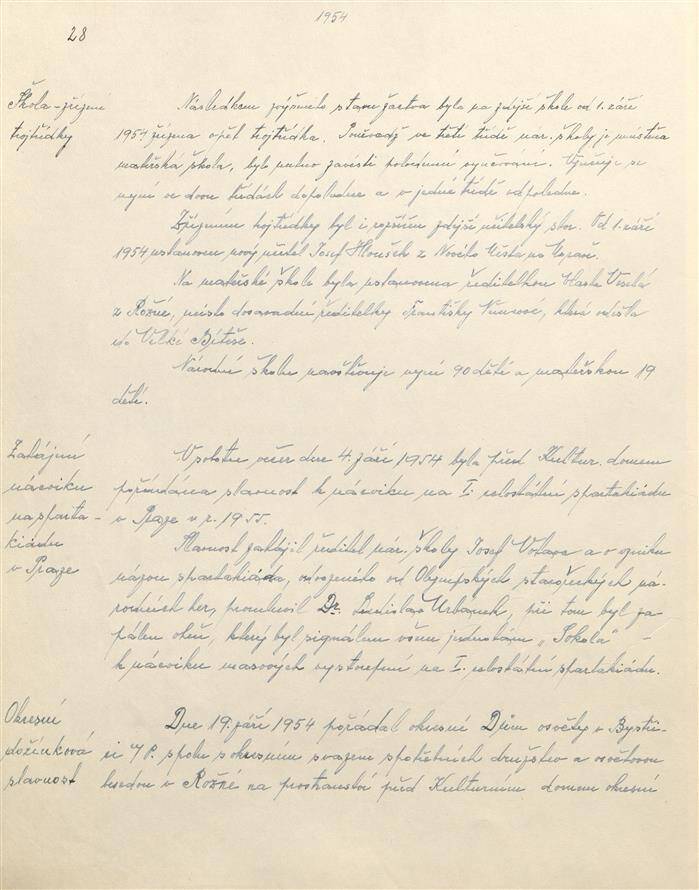 1954
28
Škola - zřízení
trojtřídky
Následkem zvýšeného stavu žactva byla na zdejší škole od 1. září
1954 zřízena opět trojtřídka. Poněvadž ve třetí třídě nár. školy je umístěna
mateřská škola, bylo nutno zavésti polodenní vyučování. Vyučuje se
nyní ve dvou třídách dopoledne a v jedné třídě odpoledne.
Zřízením trojtřídky byl i rozšířen zdejší učitelský sbor. Od 1. září
1954 ustanoven nový učitel Josef Hloušek z Nového Města na Moravě.
Na mateřské škole byla ustanovena ředitelkou Vlasta Veselá
z Rožné, místo dosavadní ředitelky Františky, která odešla
do Velké Bíteše.
Národní školu navštěvuje nyní 90 dětí a mateřskou 19
dětí.
Zahájení
nácviku
na sparta-
kiádu
v Praze
V sobotu večer dne 4. září 1954 byla před Kultur. domem
pořádána slavnost k nácviku na I. celostátní spartakiádu
v Praze v r. 1955.
Slavnost zahájil ředitel nár. školy Josef Votava a o vzniku
názvu spartakiáda, odvozeného od Olympských starořeckých ná-
rodních her, promluvil Dr. Ladislav Urbánek, při tom byl za-
pálen oheň, který byl signálem všem jednotám „Sokola" -
k nácviku masových vystoupení na I. celostátní spartakiádu.
Okresní
dožínková
slavnost
Dne 19. září 1954 pořádal okresní Dům osvěty v Bystři-
ci n/P. spolu s okresním svazem spotřebních družstev a osvětovou
besedou v Rožné na prostranství před Kulturním domem okresní